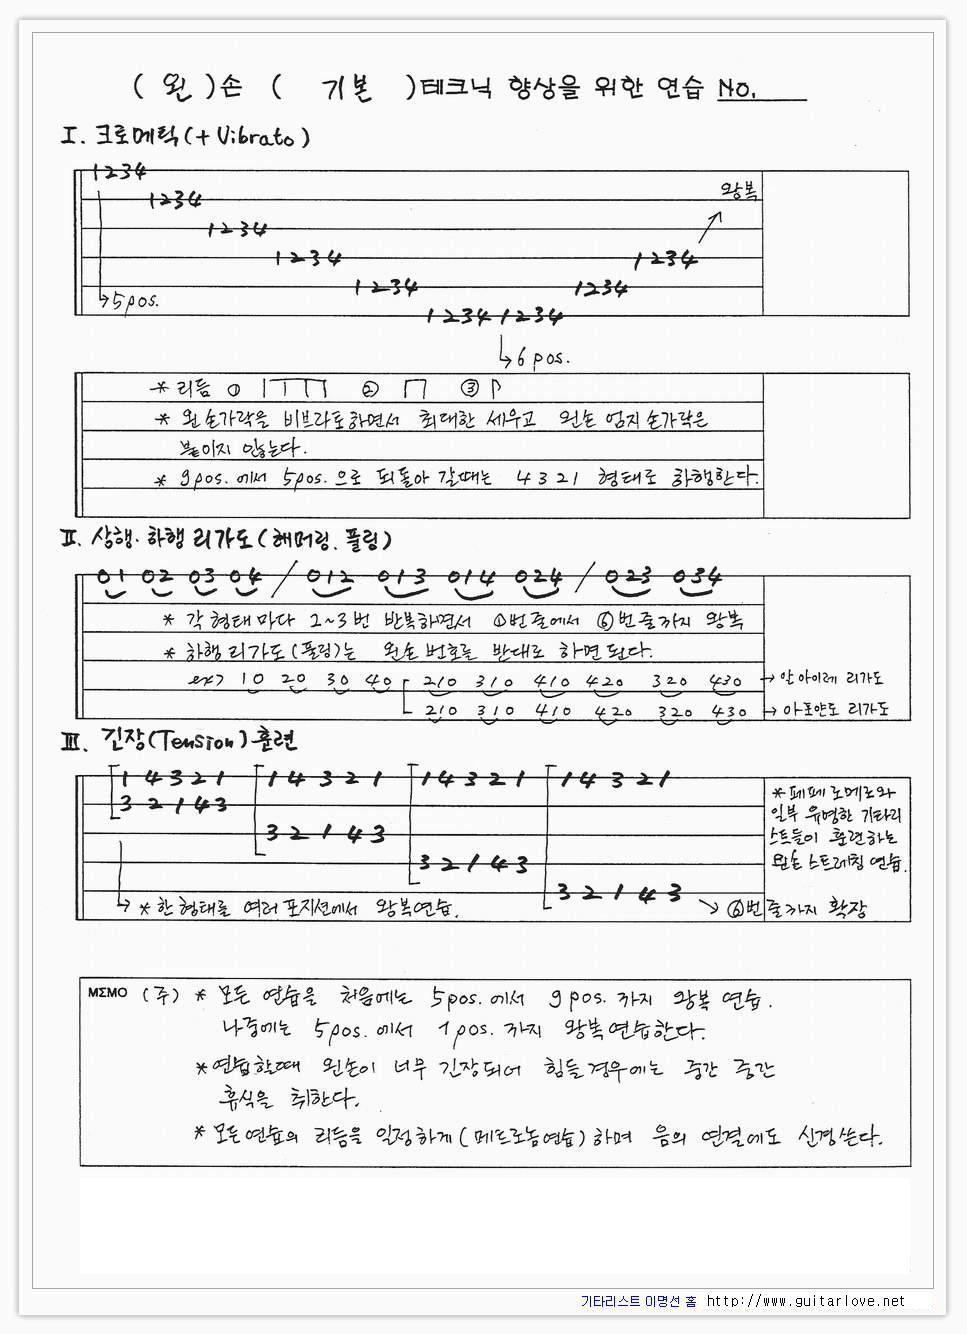 ( 왼 )손 ( 기본 )테크닉 향상을 위한 연습 No.
I. 크로메틱(+ Vibrato)
1234
1234
1234
1234
1234
1234 1234
1234
1234
왕복
5pos.
6 pos.
* 리듬 ① ② ③
* 왼손가락을 비브라토하면서 최대한 세우고 왼손 엄지손가락은
붙이지 않는다.
* 9pos.에서 5pos.으로 되돌아 갈때는 4 3 2 1 형태로 하행한다.
II. 상행·하행 리가도(해머링. 풀링)
01 02 03 04 / 012 013 014 024 / 023 034
* 각 형태마다 2~3번 반복하면서 ①번줄에서 ⑥번줄까지 왕복
* 하행 리가도(풀링)는 왼손 번호를 반대로 하면 된다.
ex> 10 20 30 40 210 310 410 420 320 430 → 알 아이레 리가도
210 310 410 420 320 430 → 아포얀도 리가도
III. 긴장(Tension)훈련
1 4 3 2 1 1 4 3 2 1 1 4 3 2 1 1 4 3 2 1
3 2 1 4 3
3 2 1 4 3
3 2 1 4 3
3 2 1 4 3
* 페페로메로와
일부 유명한 기타리
스트들이 훈련하는
왼손 스트레칭 연습.
* 한 형태를 여러 포지션에서 왕복연습.
⑥번줄까지 확장
MEMO (주) * 모든 연습을 처음에는 5pos.에서 9pos.까지 왕복 연습.
나중에는 5pos.에서 1pos.까지 왕복연습한다.
* 연습할때 왼손이 너무 긴장되어 힘들경우에는 중간 중간
휴식을 취한다.
* 모든연습의 리듬을 일정하게(메트로놈연습)하며 음의 연결에도 신경쓴다.
기타리스트 이명선 홈 http://www.guitarlove.net